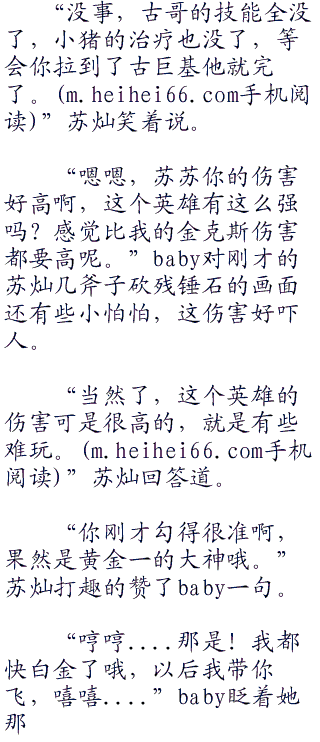 “没事，古哥的技能全没
了，小猪的治疗也没了，等
会你拉到了古巨基他就完
了。(m.heihei66.com手机阅
读)”苏灿笑着说。
“嗯嗯，苏苏你的伤害
好高啊，这个英雄有这么强
吗？感觉比我的金克斯伤害
都要高呢。”baby对刚才的
苏灿几斧子砍残锤石的画面
还有些小怕怕，这伤害好吓
人。
“当然了，这个英雄的
伤害可是很高的，就是有些
难玩。(m.heihei66.com手机
阅读)”苏灿回答道。
“你刚才勾得很准啊，
果然是黄金一的大神哦。”
苏灿打趣的赞了baby一句。
“哼哼....那是！我都
快白金了哦，以后我带你
飞，嘻嘻....”baby眨着她
那